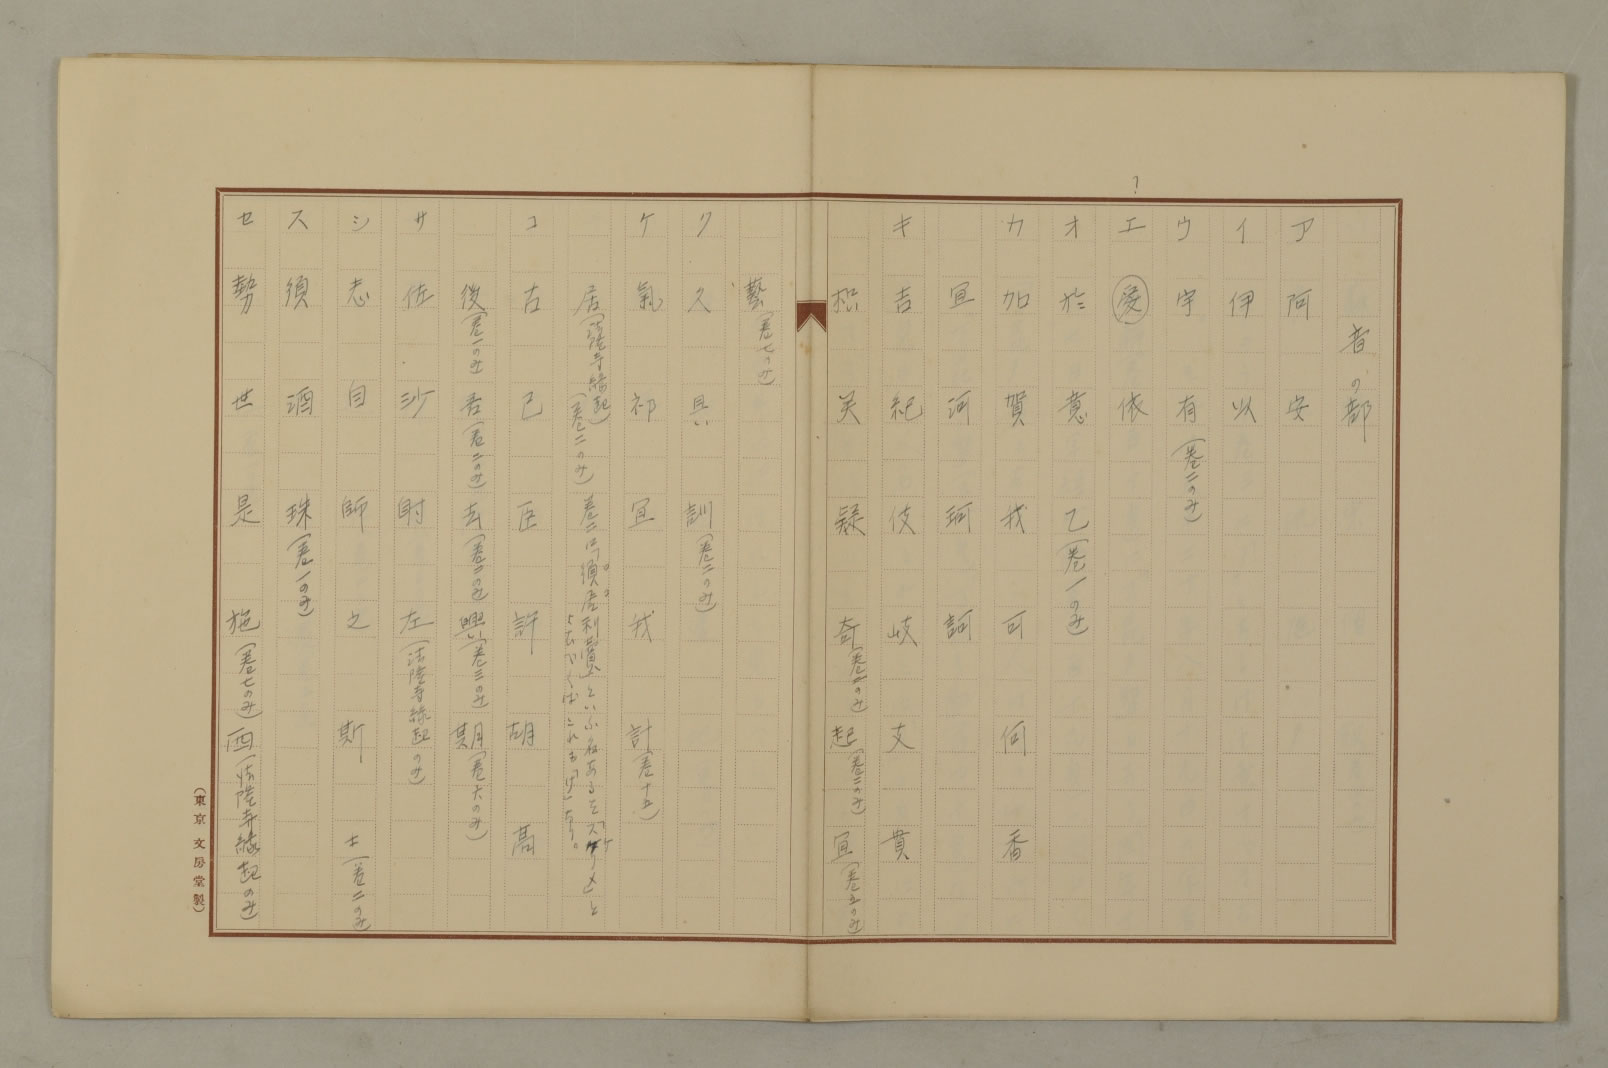 音の部
ア 阿 安
イ 伊 以
ウ 宇 有(卷二のみ)
?
エ 愛 依
オ 於 意 乙(卷一のみ)
カ 加 賀 我 可 何 香
宜 河 珂 訶
キ 吉 紀 伎 岐 支 貴
杞 芺 疑 奇(卷二のみ) 起(卷二のみ) 宜(卷五のみ)
藝(卷七のみ)
ク 久 具 訓(卷二のみ)
ケ 氣 祁 宜 我 計(卷十五)
居(法隆寺縁起)(卷二のみ) 卷二に「須居利賣」といふ名あるを「スケリメ」と
よむべくばこれも「け」なり。
コ 古 己 巨 許 胡 高
後(卷一のみ) 吾(卷二のみ) 去(卷二のみ) 興(卷三のみ) 期(卷六のみ)
サ 佐 沙 射 左(法隆寺縁起のみ)
シ 志 自 師 之 斯 士(卷二のみ)
ス 須 酒 珠(卷一のみ)
セ 勢 世 是 施(卷七のみ) 西(法隆寺縁起のみ)
(東京 文房堂製)